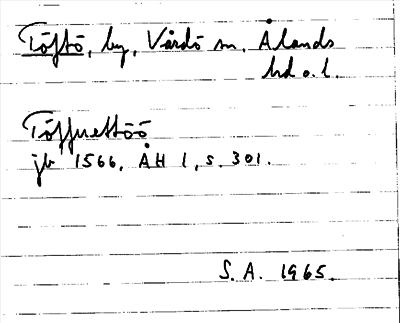 Töftö, by, Vårdö sn, Ålands
hd o. l.
Töffuettöö
jb 1566, ÅH 1, s. 301.
S. A. 1965.